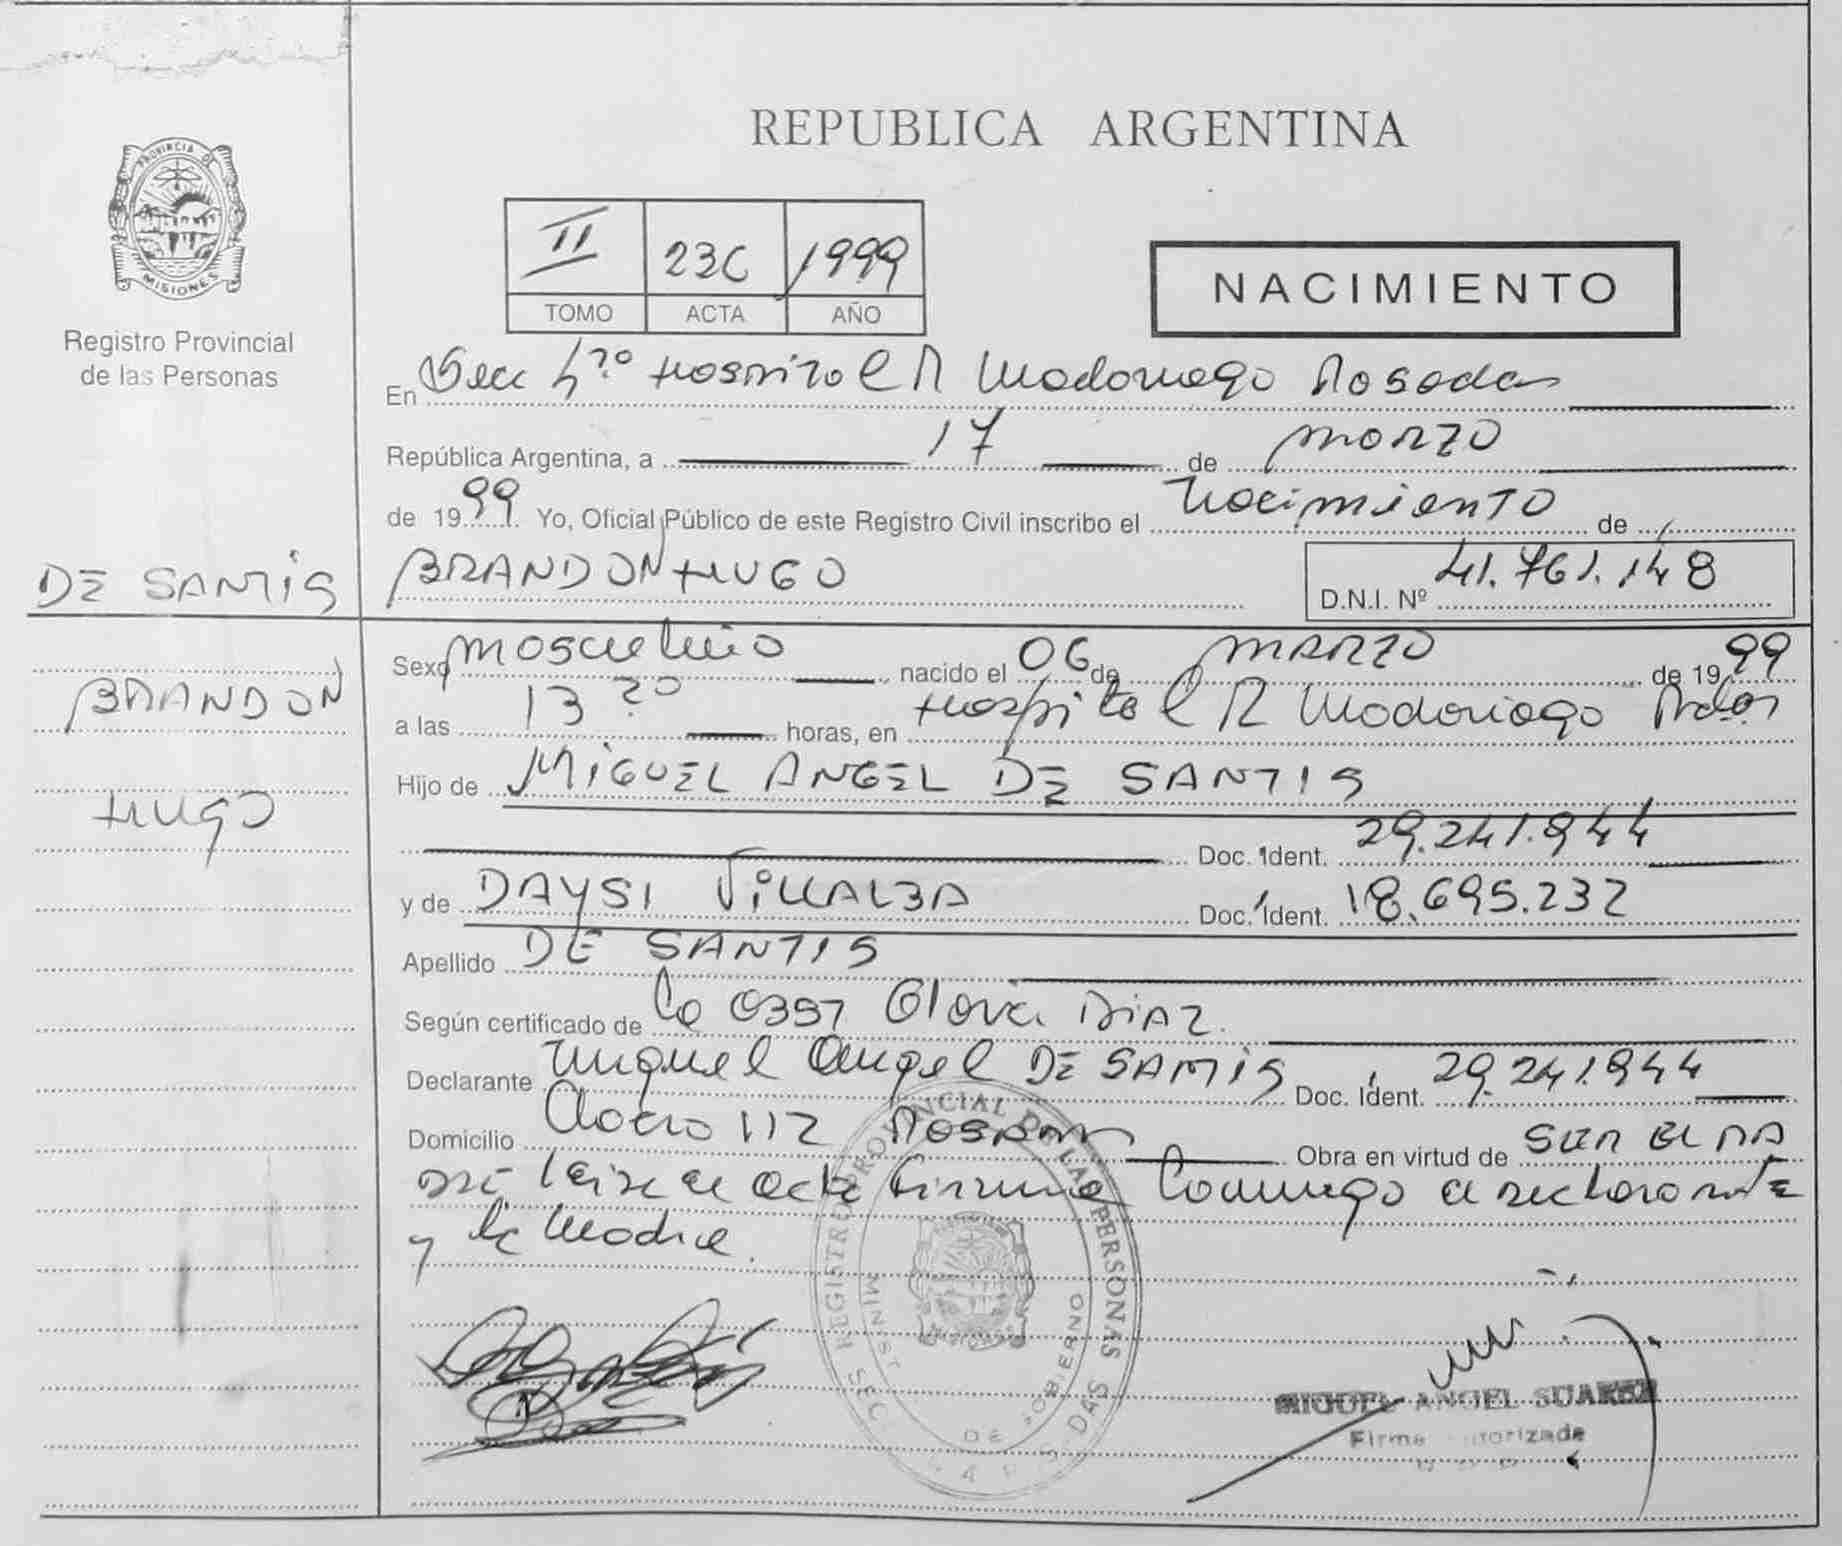 PROVINCIA DE
MISIONES
Registro Provincial
de las Personas
REPUBLICA ARGENTINA
II 230 1999
TOMO ACTA AÑO
NACIMIENTO
En Secc 4ta Hospital R Madariaga Posadas
República Argentina, a 17 de marzo
de 1999. Yo, Oficial Público de este Registro Civil inscribo el nacimiento de
DE SANTIS
BRANDON HUGO
D.N.I. Nº 41.761.148
BRANDON
HUGO
Sexo masculino nacido el 06 de MARZO de 1999
a las 13 horas, en Hospital R Madariaga Pdas
Hijo de MIGUEL ANGEL DE SANTIS
Doc. Ident. 29.241.944
y de DAYSI VILLALBA Doc. Ident. 18.695.232
Apellido DE SANTIS
Según certificado de DIAZ
Declarante Miguel Angel DE SANTIS Doc. Ident. 29.241.944
Domicilio 112 Posadas Obra en virtud de SER EL PA
DRE acta firma conmigo el declarante
y la Madre.
REGISTRO PROVINCIAL DE LAS PERSONAS
MINIST DE GOBIERNO
MIGUEL ANGEL SUAREZ
Firma Autorizada